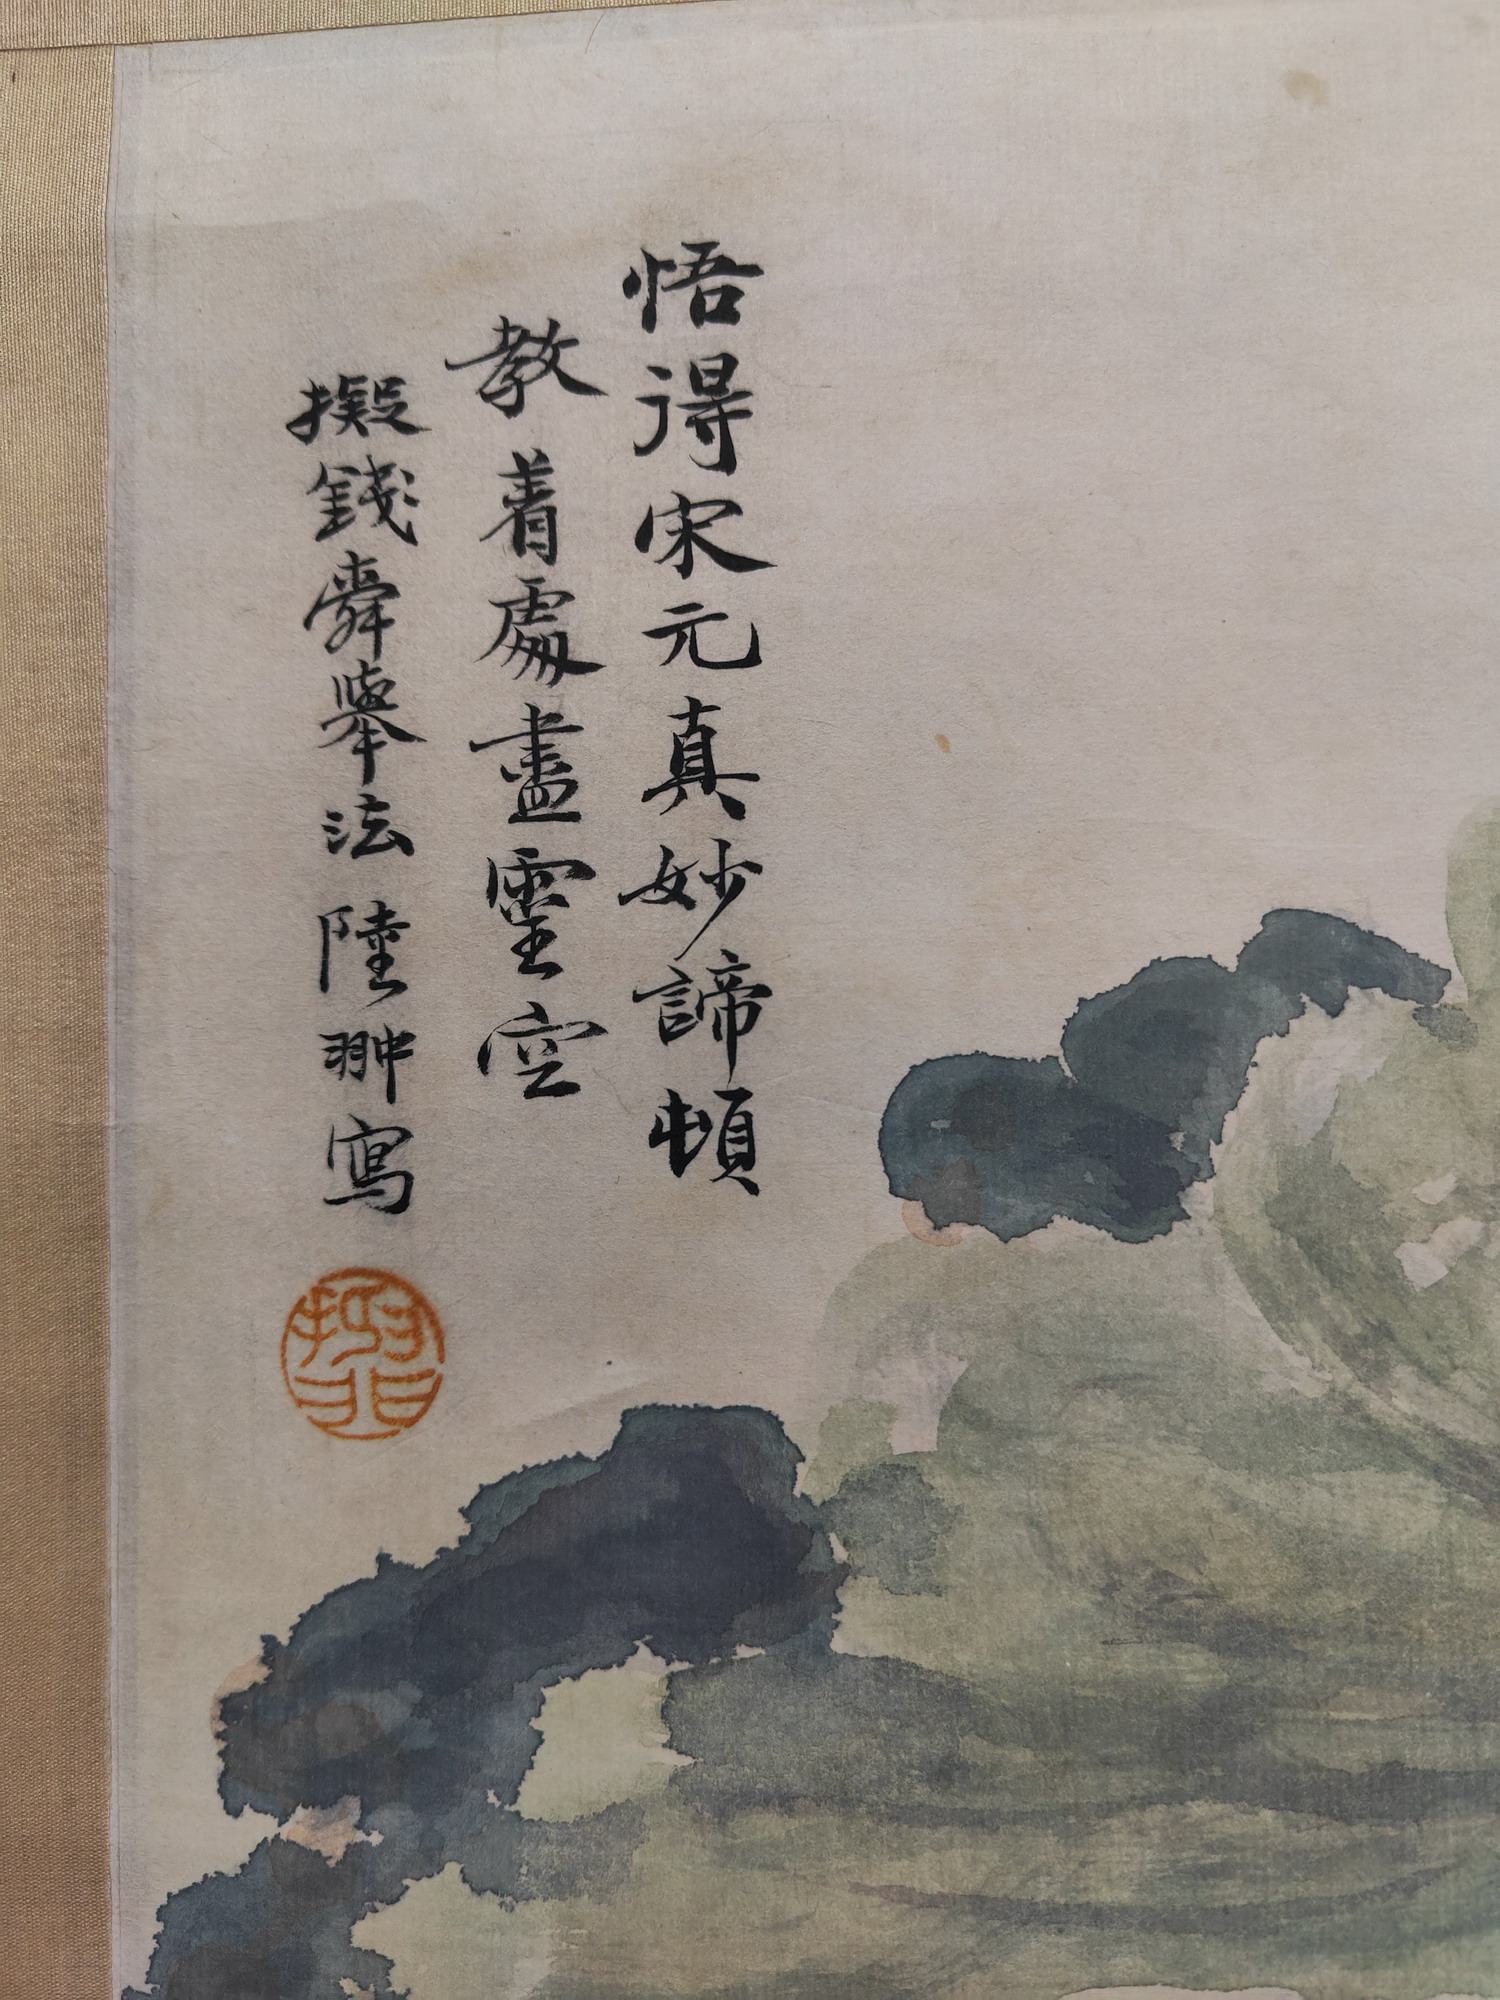 悟得宋元真妙諦頓
教着處盡靈空
擬錢舜舉法陸翀寫